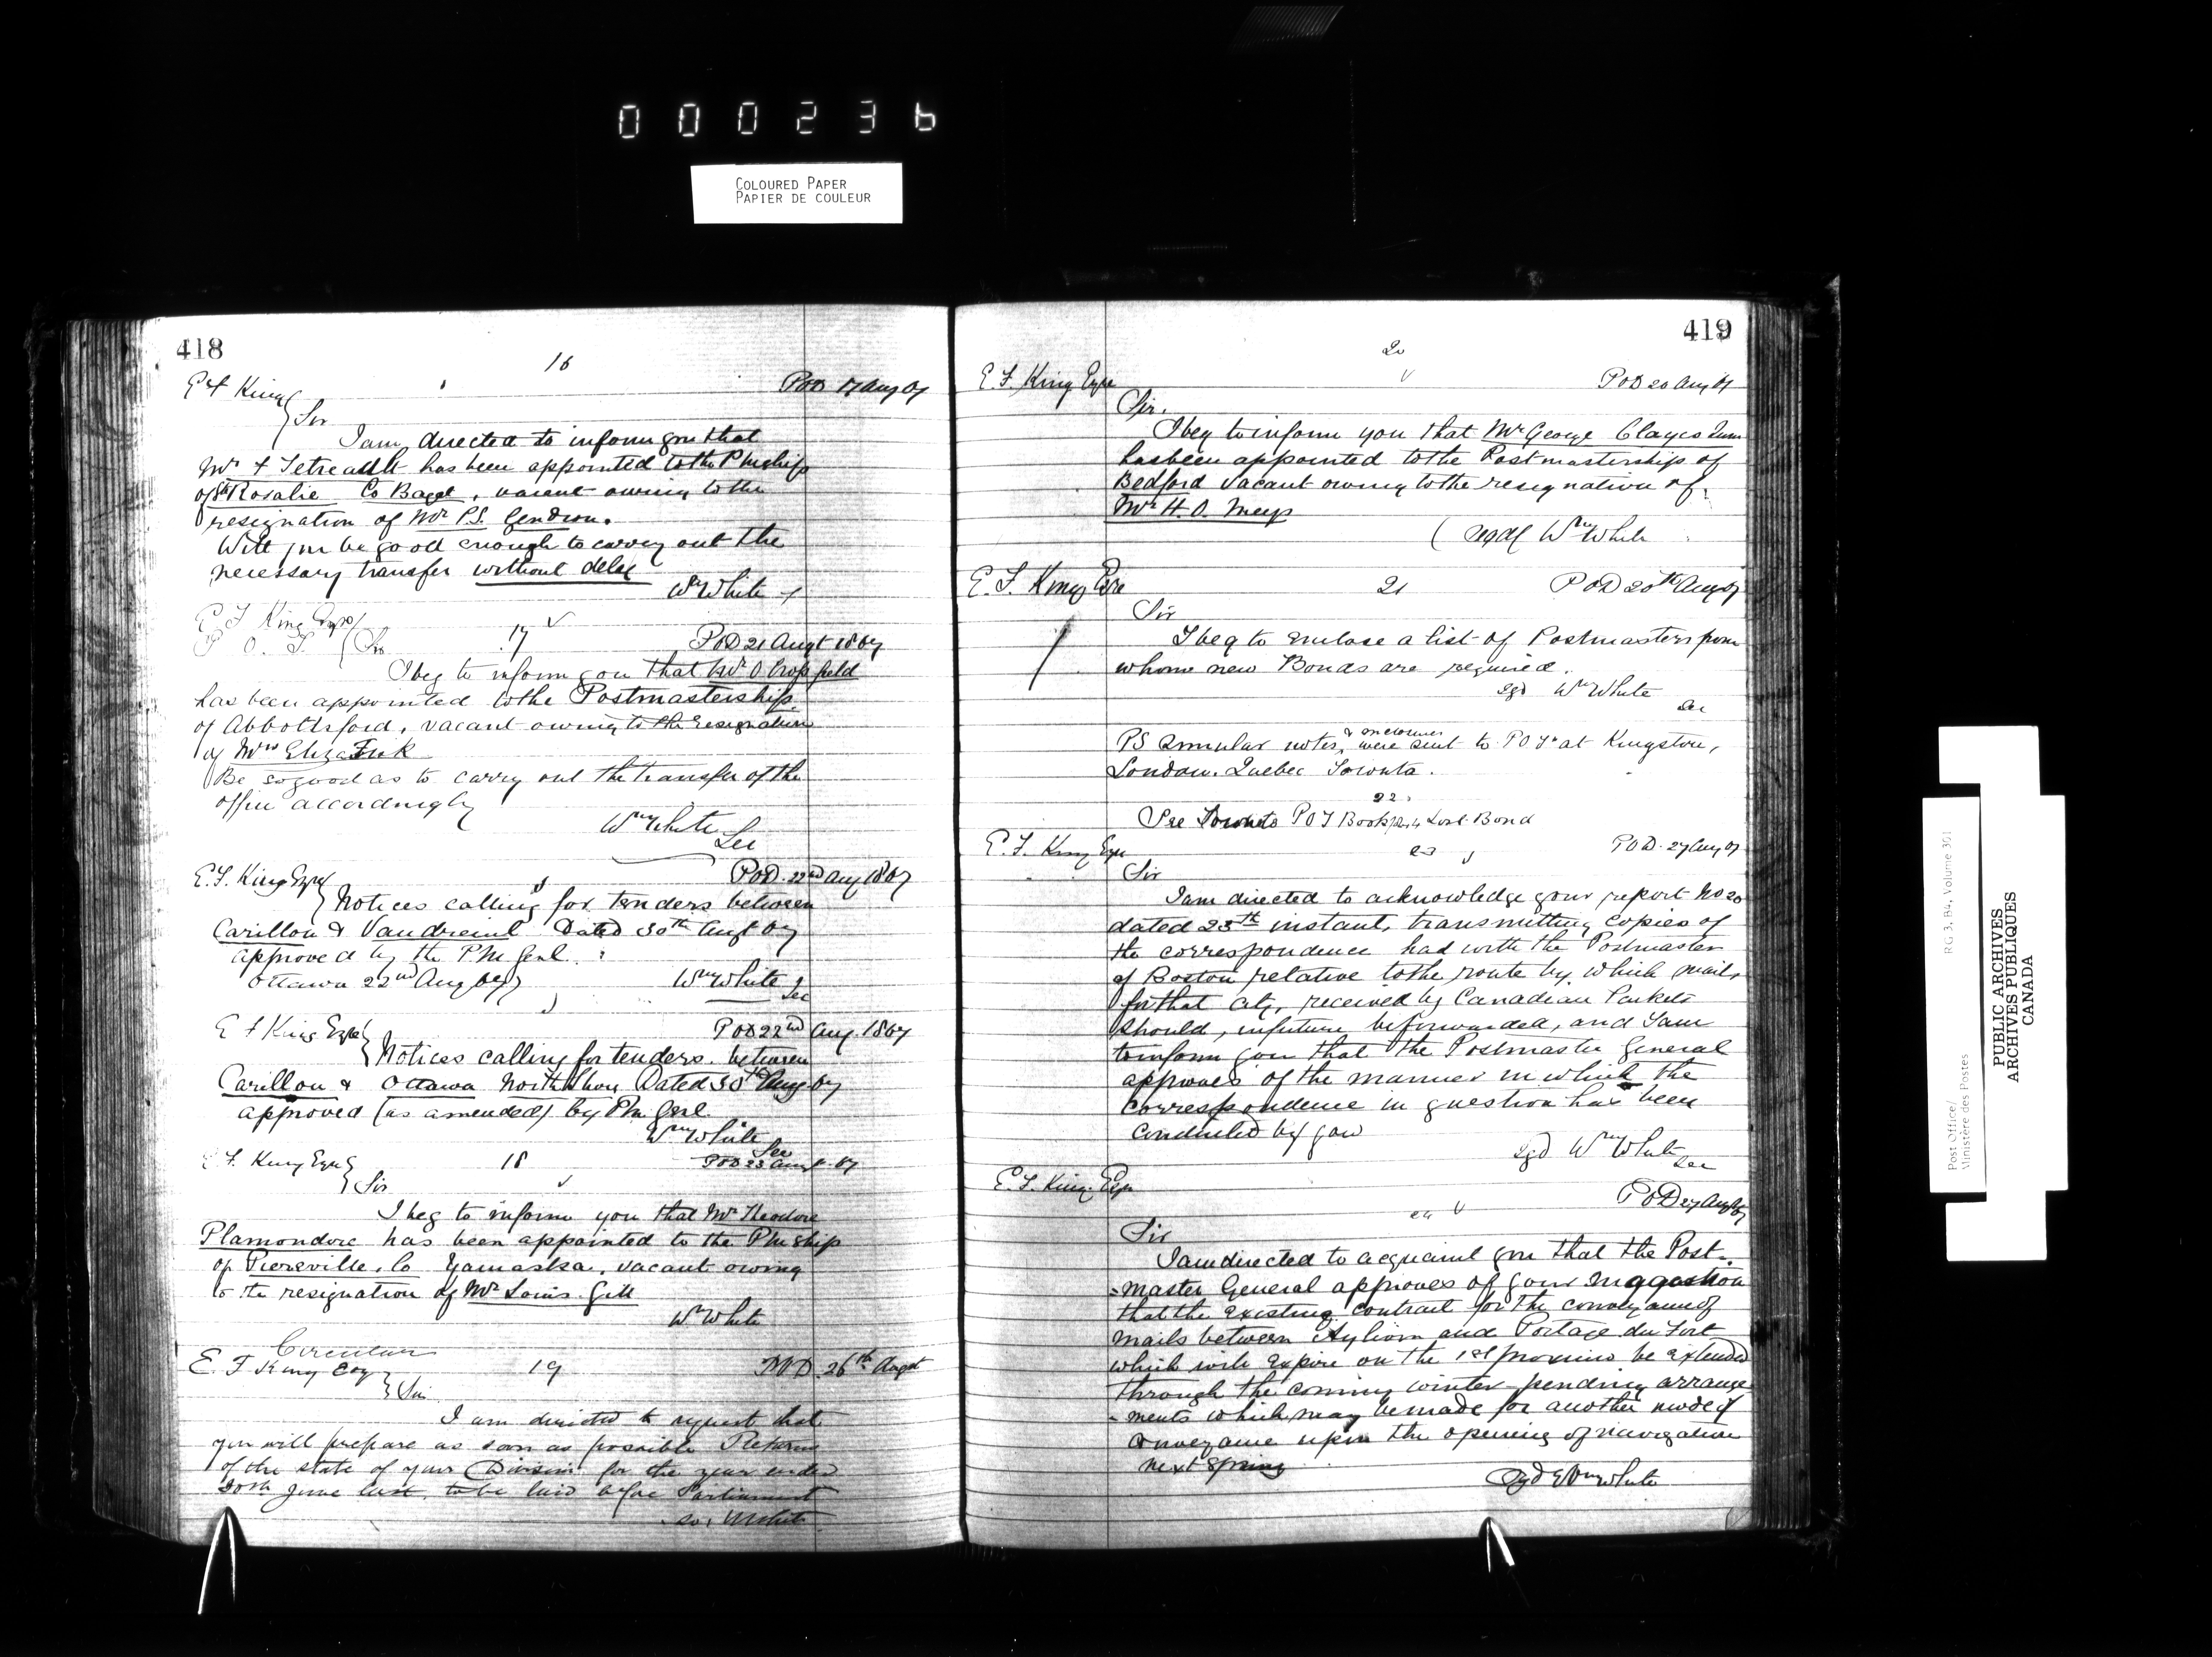 000236
COLOURED PAPER
PAPIER DE COULEUR
418
16
E F King
POD 17 Aug 67
Sir
I am directed to inform you that
Mr F Tetreault has been appointed to the Pmship
of St Rosalie Co Bagot, vacant owing to the
resignation of Mr P.S. Gendron.
Will you be good enough to carry out the
necessary transfer without delay
Wm White
E F King Esqre
P. O. I. Sir
17
POD 21 Augt 1867
I beg to inform you that Mr O Crossfield
has been appointed to the Postmastership
of Abbottsford, vacant owing to the resignation
of Mrs Eliza Fisk
Be so good as to carry out the transfer of the
office accordingly
Wm White
Sec
E.F. King Esqre
POD 22nd Aug 1867
Notices calling for tenders between
Carillon & Vaudreuil Dated 30th Augt 67
approved by the PM Genl.
Ottawa 22nd Aug 67
Wm White
Sec
E F King Esqre
POD 22nd Aug. 1867
Notices calling for tenders between
Carillon & Ottawa North Shore Dated 30th Aug 67
approved (as amended) by Pm Genl.
Wm White
Sec
E F. King Esqre
18
POD 23 Augt 67
Sir
I beg to inform you that Mr Theodore
Plamondon has been appointed to the Pmship
of Piereville, Co Yamaska, vacant owing
to the resignation of Mr Louis Gill
Wm White
Circular
E. F King Esq
19
POD 26th Augst
Sir
I am directed to request that
you will prepare as soon as possible Returns
of the state of your Division for the year ended
30th June last, to be laid before Parliament
W White
419
20
E F. King Esqre
POD 20 Aug 67
Sir.
I beg to inform you that Mr George Clayes Junr
has been appointed to the Postmastership of
Bedford vacant owing to the resignation of
Mr H. O.
(signd) Wm White
E. F. King Esqre
21
POD 20th Aug 67
Sir
I beg to enclose a list of Postmasters from
whom new Bonds are required.
sgd Wm White
Sec
& enclosures
PS Similar notes, were sent to P O Is at Kingston,
London. Quebec Toronto.
22
See Toronto P O I Book Lost Bond
E. F. King Esqre
23
POD. 27 Aug 67
Sir
I am directed to acknowledge your report No 20
dated 23th instant, transmitting copies of
the correspondence had with the Postmaster
of Boston relative to the route by which mails
for that city, received by Canadian Packets
should, in future be forwarded, and I am
to inform you that the Postmaster General
approves of the manner in which the
correspondence in question has been
conducted by you
sgd Wm White
Sec
E. F. King Esqr
24
POD 27 Augt 67
Sir
I am directed to acquaint you that the Post-
-master General approves of your suggestion
that the existing contract for the conveyance of
mails between Aylmer and Portage du Fort
which will expire on the 1st proximo be extended
through the coming winter pending arrange
-ments which may be made for another mode of
conveyance upon the opening of navigation
next spring
Sgd Wm White
PUBLIC ARCHIVES
ARCHIVES PUBLIQUES
CANADA
RG 3, B4, Volume 361
Post Office/
Ministère des Postes